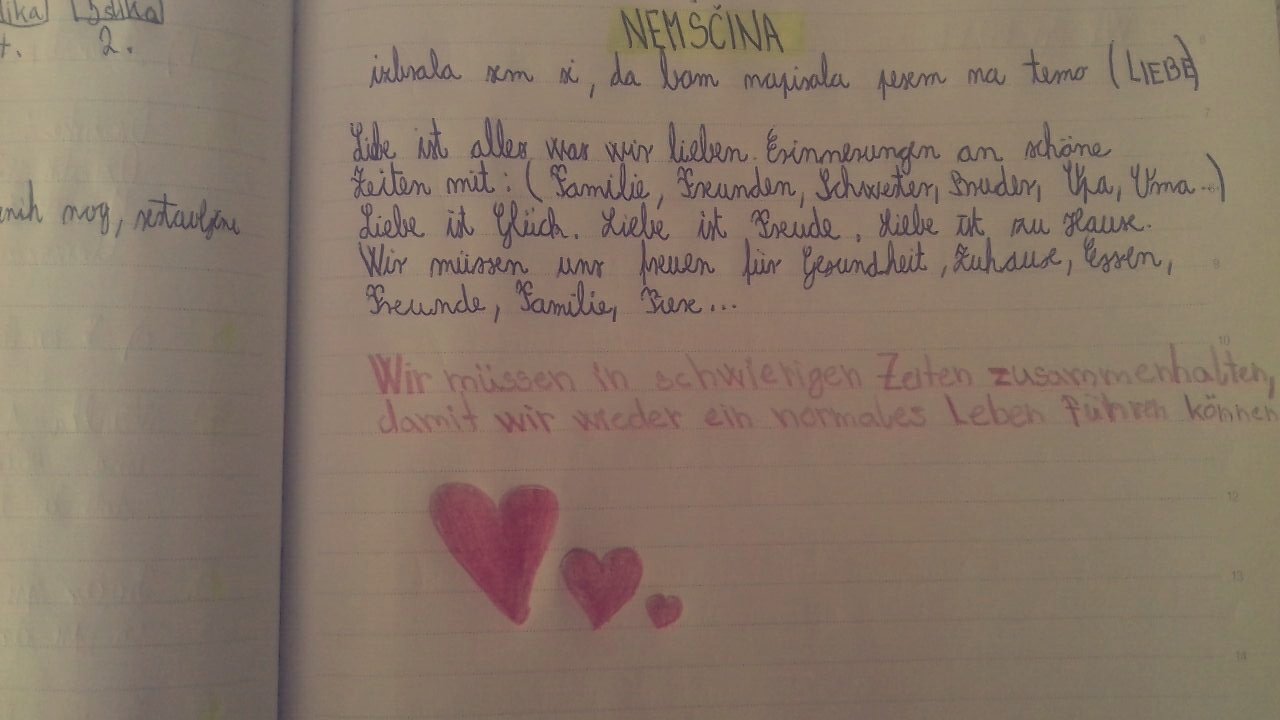 lika Lyslika
t. 2.
nih nog, sestavljene
NEMSČINA
izbrala sem si, da vam napisala pesem na temo (LIEBE)
Liebe ist alles, was wir lieben. Erinnerungen an schöne
Zeiten mit: (Familie, Freunden, Schwester, Bruder, Opa, Oma...)
Liebe ist Glück. Liebe ist Freude. Liebe ist zu Hause.
Wir müssen uns freuen für Gesundheit, Zuhause, Essen,
Freunde, Familie, Tiere...
Wir müssen in schwierigen Zeiten zusammenhalten,
damit wir wieder ein normales Leben führen können